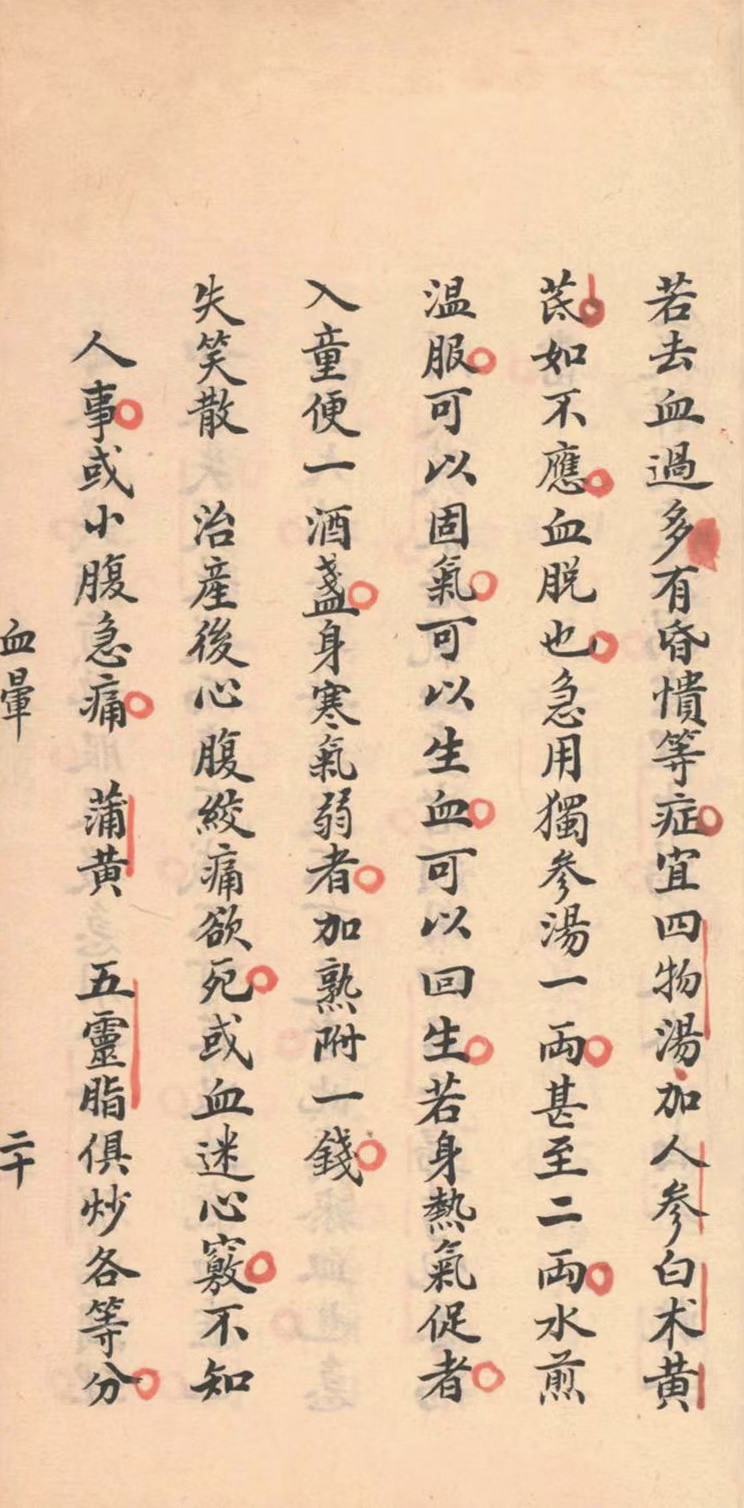 若去血過多有昏憒等症宜四物湯加人參白朮黄
茋如不應血脱也急用獨參湯一両甚至二両水煎
温服可以固氣可以生血可以回生若身熱氣促者
入童便一酒盞身寒氣弱者加熟附一錢
失笑散　治産後心腹絞痛欲死或血迷心竅不知
人事或小腹急痛　蒲黄　五靈脂俱炒各等分
血暈　二十